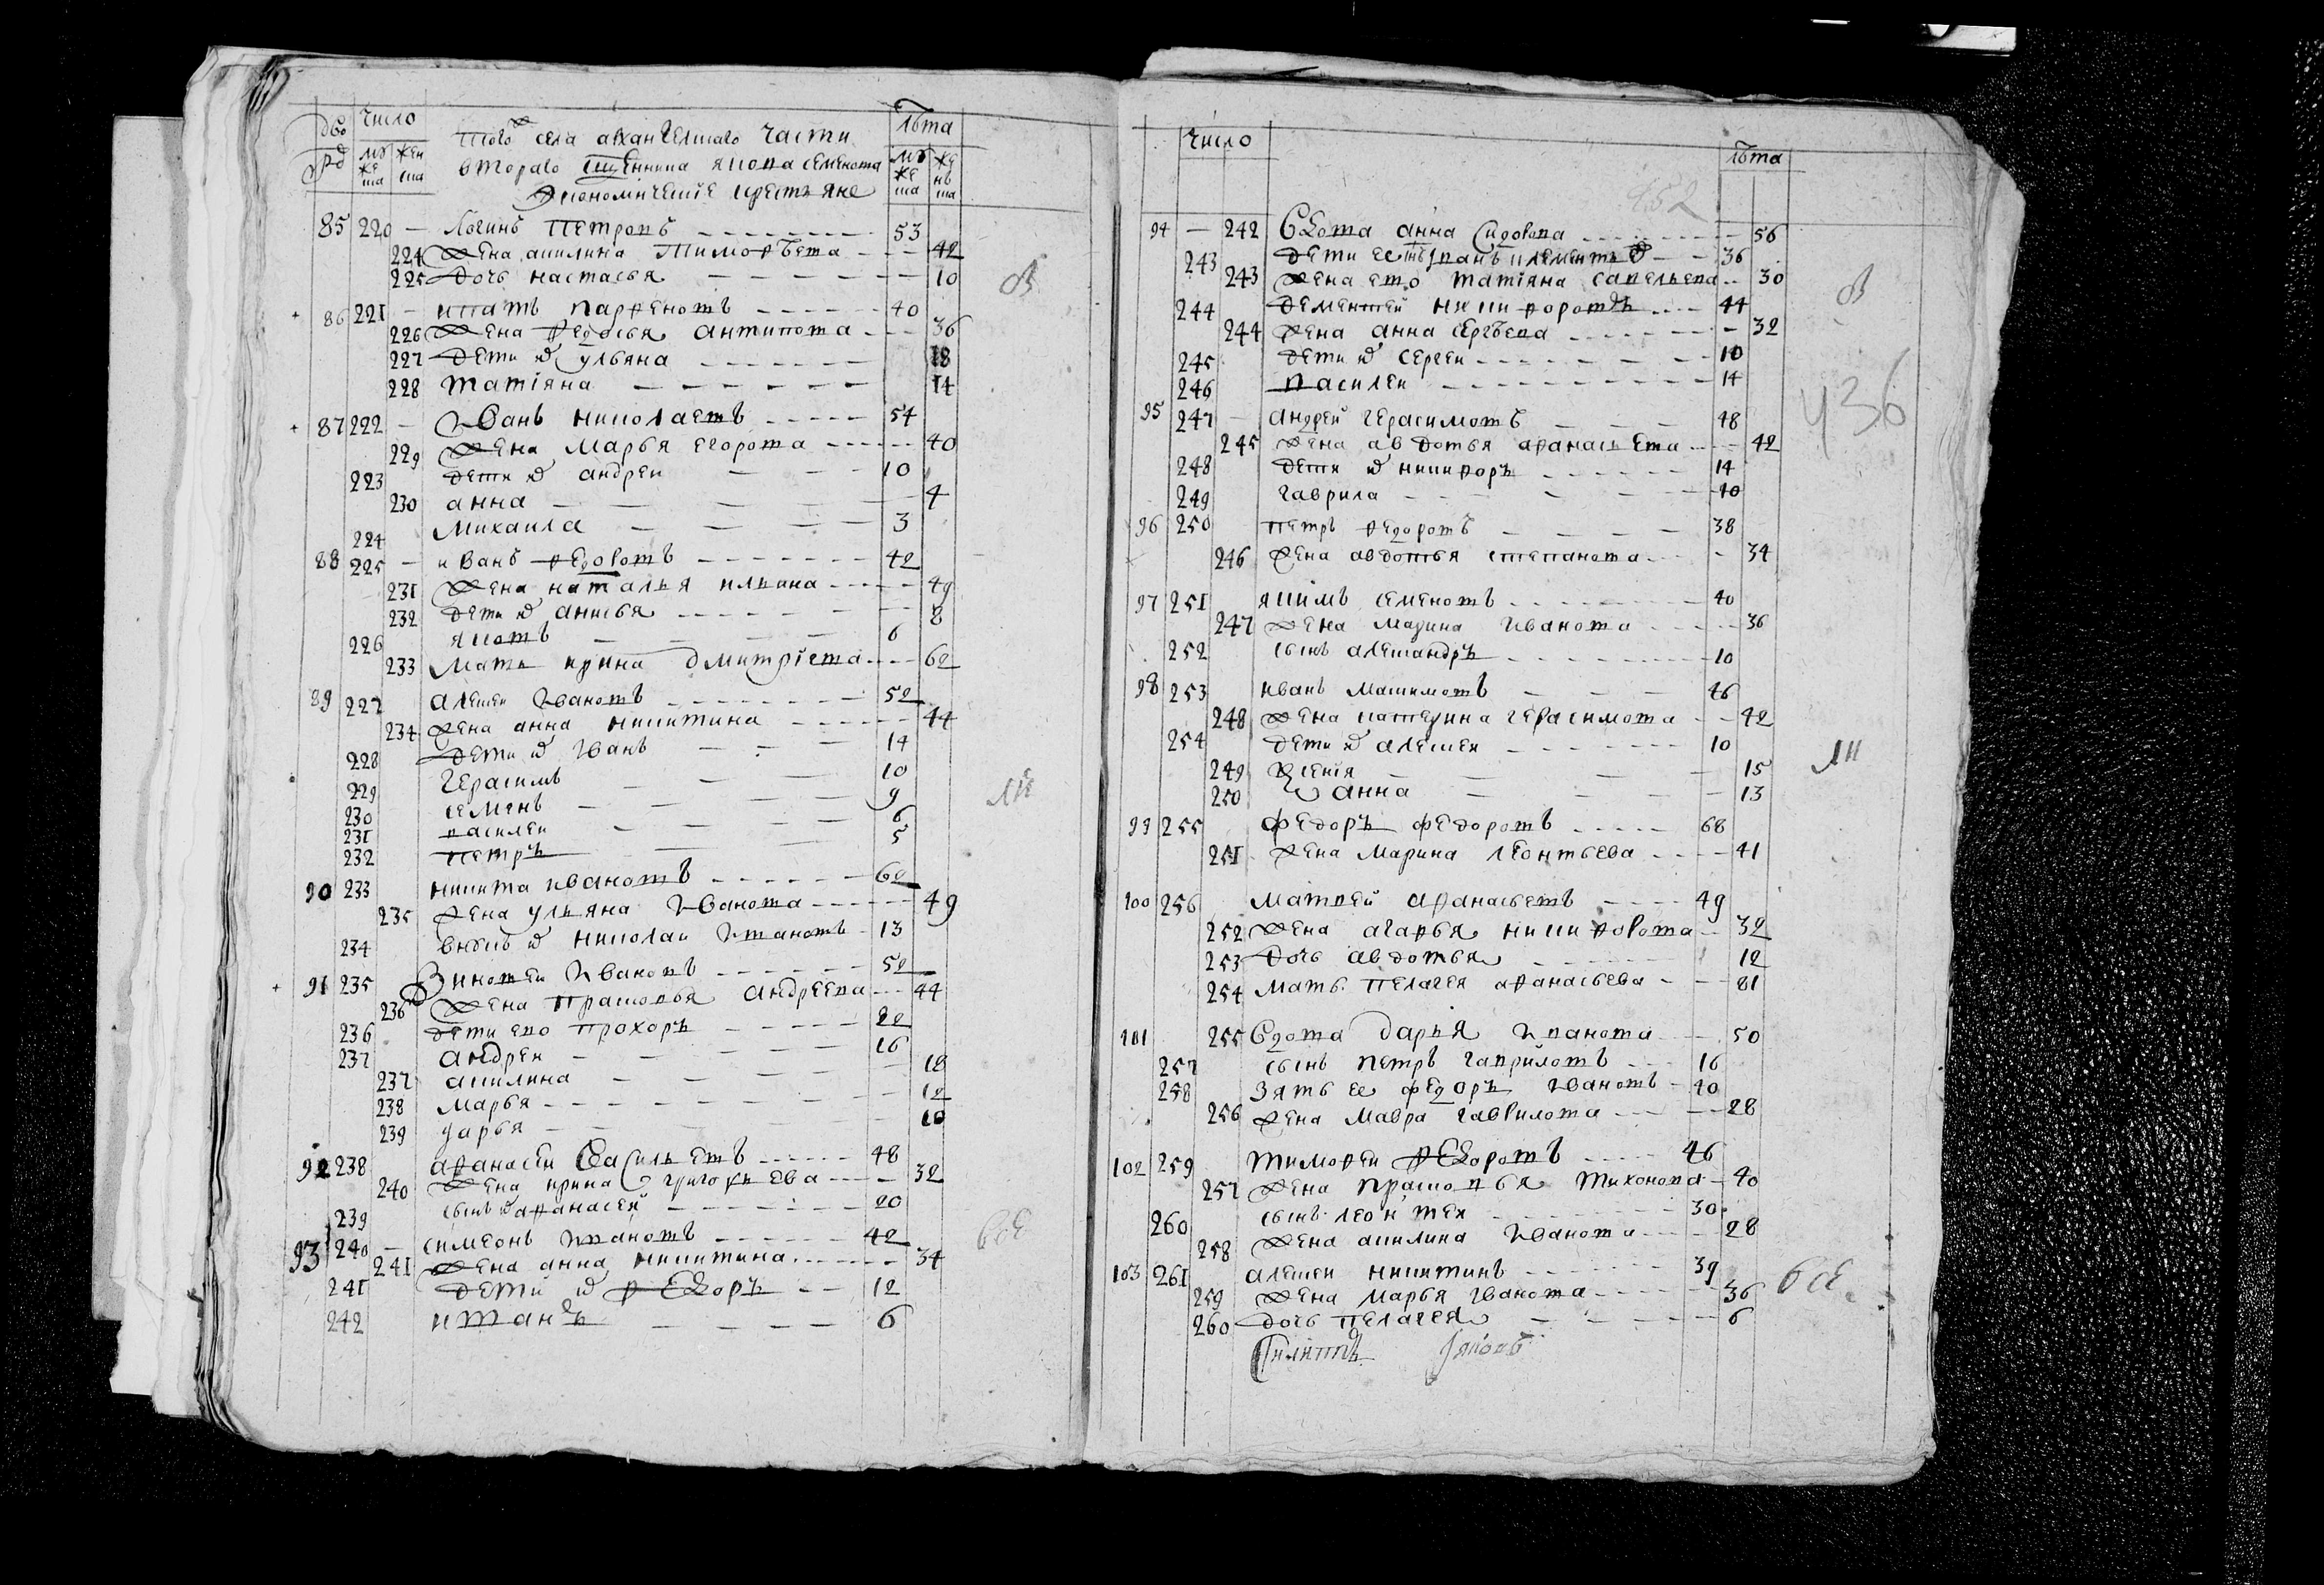 дво число того ж села архангелскаго части лѣта
ръ муже ска жен ска втораго сщенника якова семенова муже ска же нь ска
економические крестьяне
85 220 — логинъ петровъ 53
224 жена акилина тимофѣева 42
225 дочь настасья 10
+ 86 221 — ипатъ парфеновъ 40
226 жена федосья антипова 36
227 дети их ульяна 18
228 татіяна 14
+ 87 222 — Иванъ николаевъ 54
229 жена марья егорова 40
223 дети их андреи 10
230 анна 4
224 михаила 3
88 225 — иванъ федоровъ 42
231 жена наталья ильина 49
232 дети их анисья 8
226 яковъ 6
233 мати ирина дмитріева 62
89 227 алексеи Ивановъ 52
234 жена анна никитина 44
228 дети их Иванъ 14
229 герасимъ 10
230 семенъ 9
231 василеи 6
232 петръ 5
90 233 никита ивановъ 62
235 жена ульяна Иванова 49
234 внукъ их николаи Ивановъ 13
+ 91 235 Зиновеи Ивановъ 52
236 жена прасковья андреева 44
236 дети ево прохоръ 22
237 андреи 16
237 акилина 18
238 марья 12
239 дарья 10
92 238 афанасеи Васильевъ 48
240 жена ирина григорьева 32
239 сынъ их афанасеи 20
93 240 — симеонъ Ивановъ 42
241 жена анна никитина 34
241 дети их федоръ 12
242 иванъ 6
в
ли
все
число лѣта
452
94 — 242 Вдова анна сидорова 56
243 дети ее иванъ климентъ 36
243 жена ево татіяна савельева 30
244 дементеи никифоровъ 44
244 жена анна сергѣева 32
245 дети их сергеи 10
246 василеи 14
95 247 — андреи герасимовъ 48
245 жена авдотья афанасьева 42
248 дети их никифоръ 14
249 гаврила 10
96 250 петръ федоровъ 38
246 жена авдотья степанова 34
97 251 якимъ семеновъ 40
247 жена марина Иванова 36
252 сынъ александръ 10
98 253 иванъ максимовъ 46
248 жена катерина герасимова 42
254 дети их алексеи 10
249 ксенія 15
250 анна 13
99 255 федоръ федоровъ 68
251 жена марина леонтьева 41
100 256 матвеи афанасьевъ 49
252 жена агафья никифорова 32
253 дочь авдотья 12
254 мать пелагея афанасьева 81
101 255 Вдова дарья Иванова 50
257 сынъ петръ гавриловъ 16
258 зять ее федоръ Ивановъ 40
256 жена мавра гаврилова 28
102 259 тимофеи федоровъ 46
257 жена прасковья тихонова 40
260 сынъ леонтеи 30
258 жена акилина Иванова 28
103 261 алексеи никитинъ 39
259 жена марья Иванова 36
260 дочь пелагея 6
в
436
ли
все